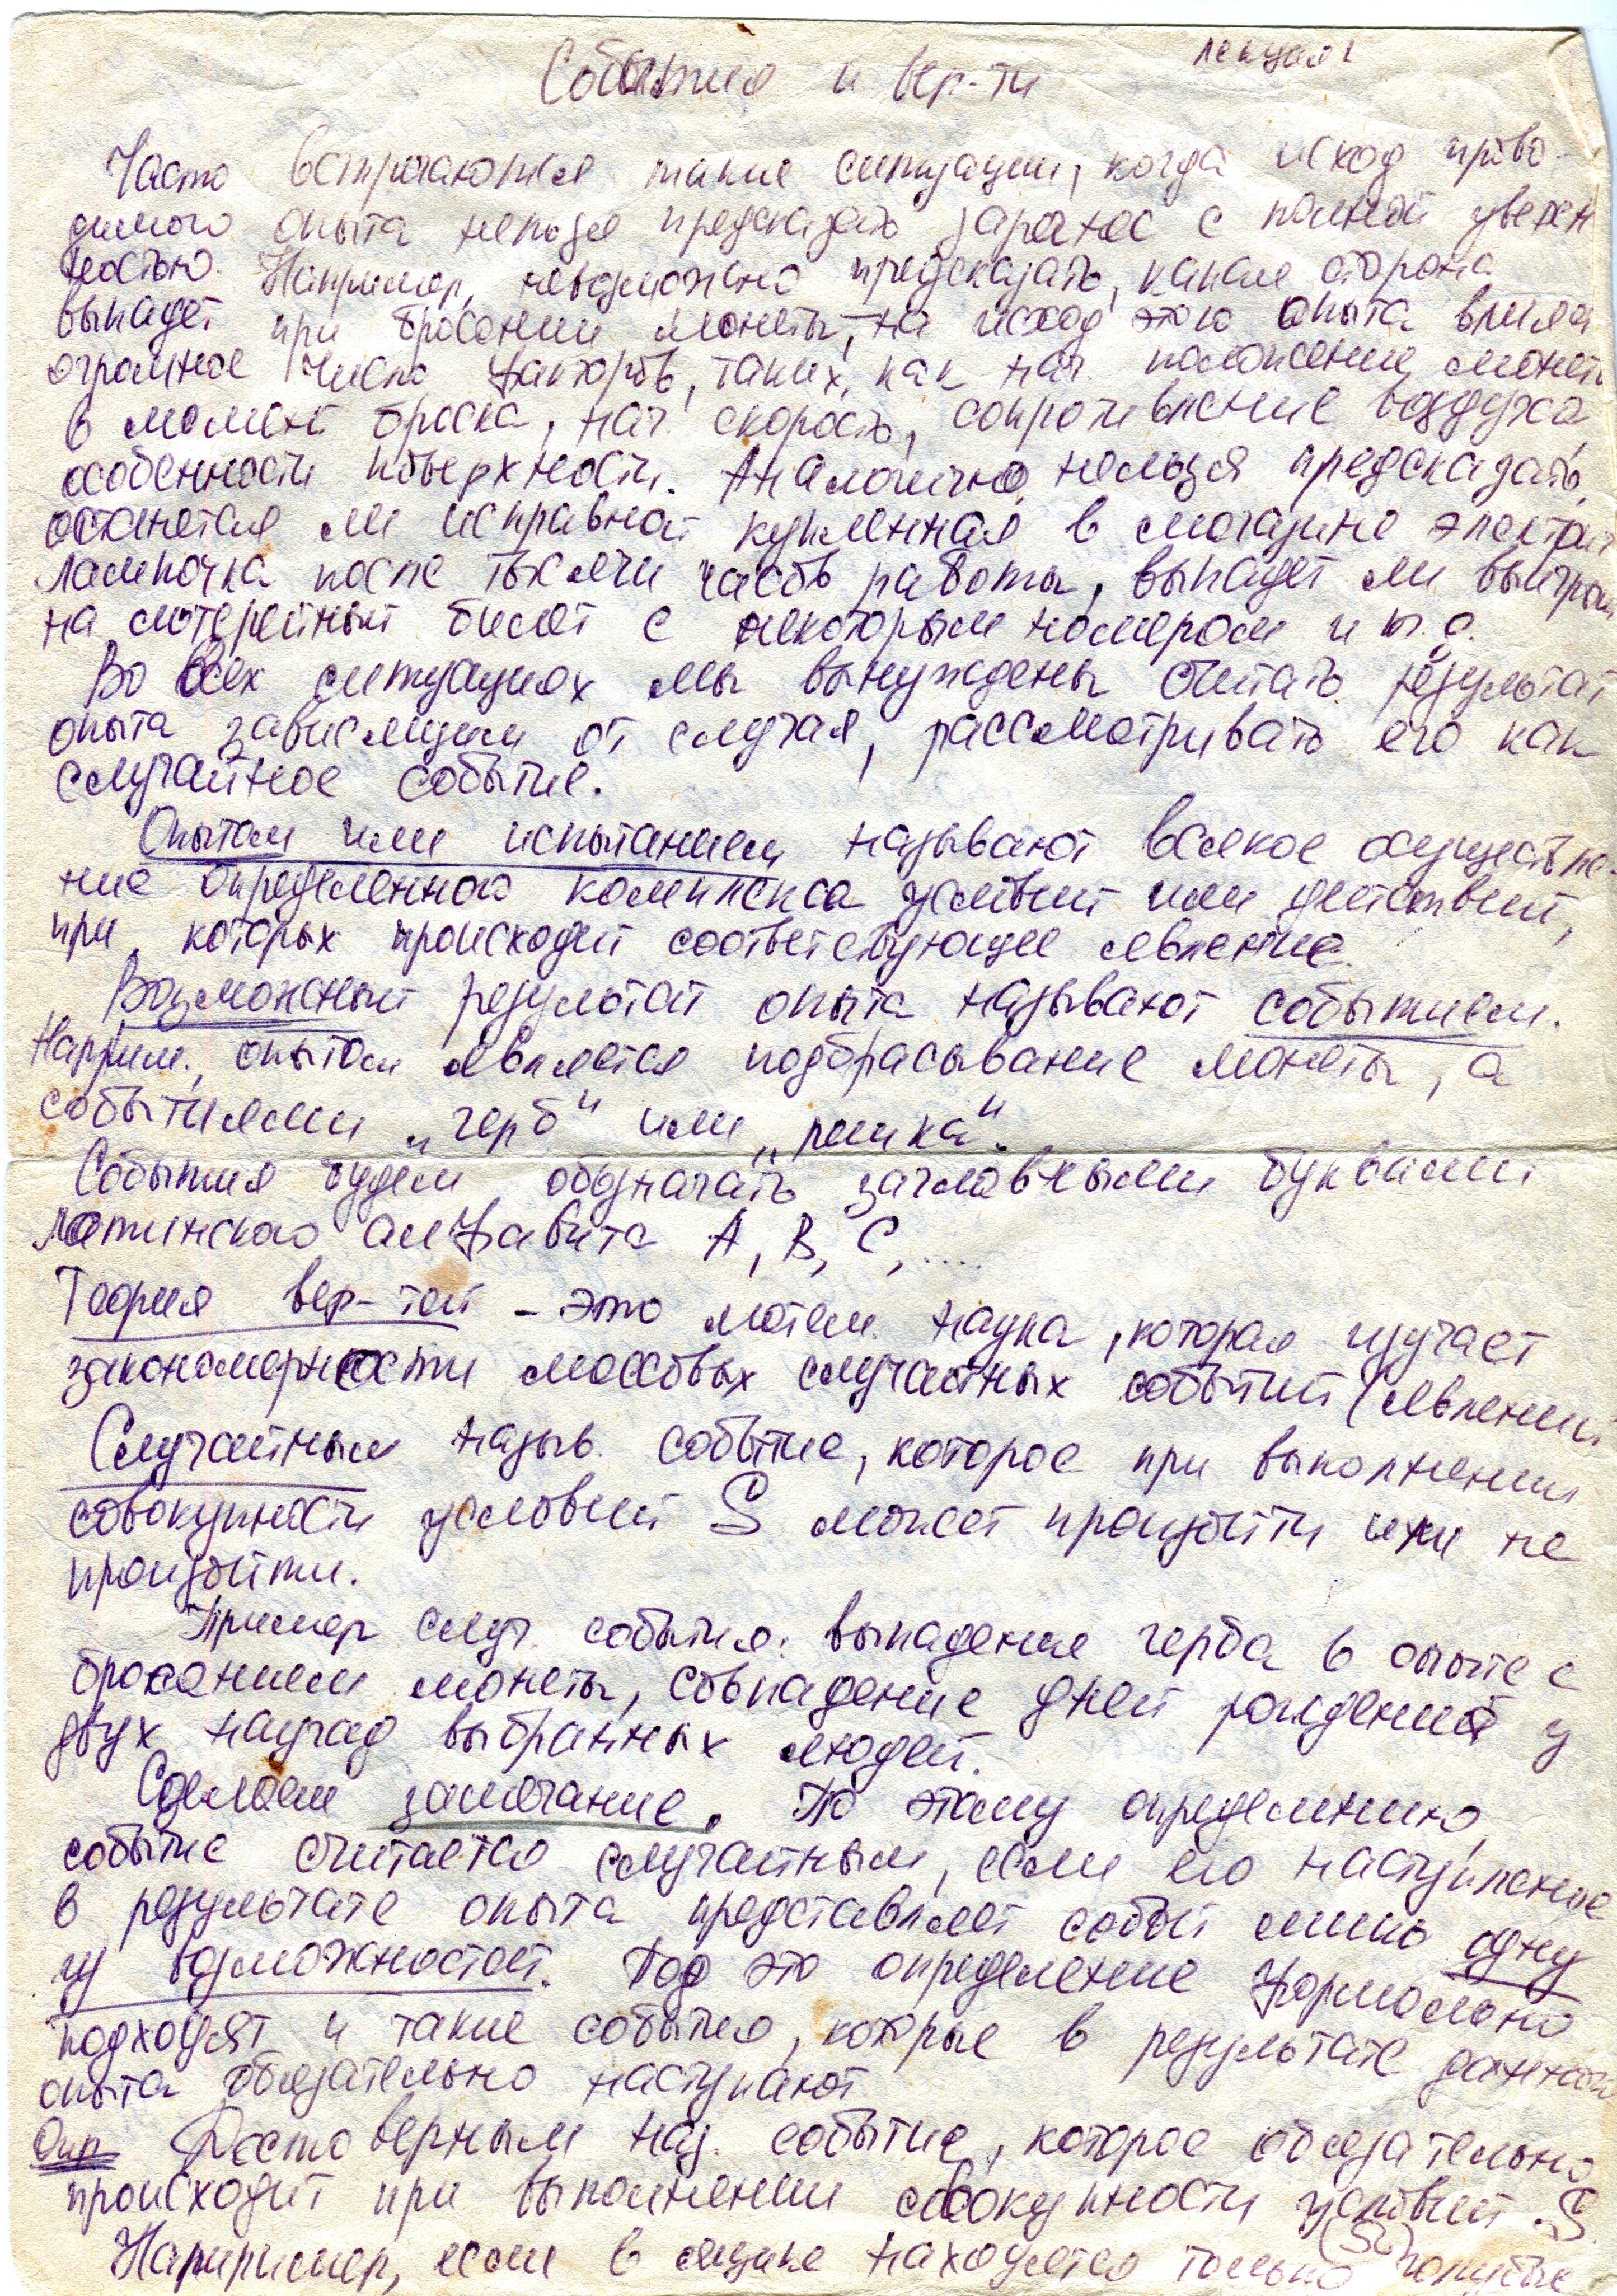 лекция 1
События и вер-ти
Часто встречаются такие ситуации, когда исход прово-
димого опыта нельзя предсказать заранее с полной уверен
ностью. Например, невозможно предсказать, какая сторона
выпадет при бросании монеты, на исход этого опыта влияет
огромное число факторов, таких, как нач. положение монеты
в момент броска, нач. скорость, сопротивление воздуха,
особенности поверхности. Аналогично, нельзя предсказать,
останется ли исправной купленная в магазине электрич
лампочка после тысячи часов работы, выпадет ли выигрыш
на лотерейный билет с некоторым номером и т.д.
Во всех ситуациях мы вынуждены считать результат
опыта зависящим от случая, рассматривать его как
случайное событие.
Опытом или испытанием называют всякое осуществле-
ние определенного комплекса условий или действий,
при которых происходит соответствующее явление.
Возможный результат опыта называют событием.
Наприм., опытом является подбрасывание монеты, а
событиями „герб" или „решка".
События будем обозначать заглавными буквами
латинского алфавита А, В, С, ....
Теория вер-тей - это матем. наука, которая изучает
закономерности массовых случайных событий (явлений
Случайным назыв. событие, которое при выполнении
совокупности условий S может произойти или не
произойти.
Пример случ. события: выпадение герба в опыте с
бросанием монеты, совпадение дней рождений у
двух наугад выбранных людей.
Сделаем замечание. По этому определению,
событие считается случайным, если его наступление
в результате опыта представляет собой лишь одну
из возможностей. Под это определение формально
подходят и такие события, которые в результате данного
опыта обязательно наступают
Опр Достоверным наз. событие, которое обязательно
происходит при выполнении совокупности условий S.
Например, если в ящике находятся только голубые